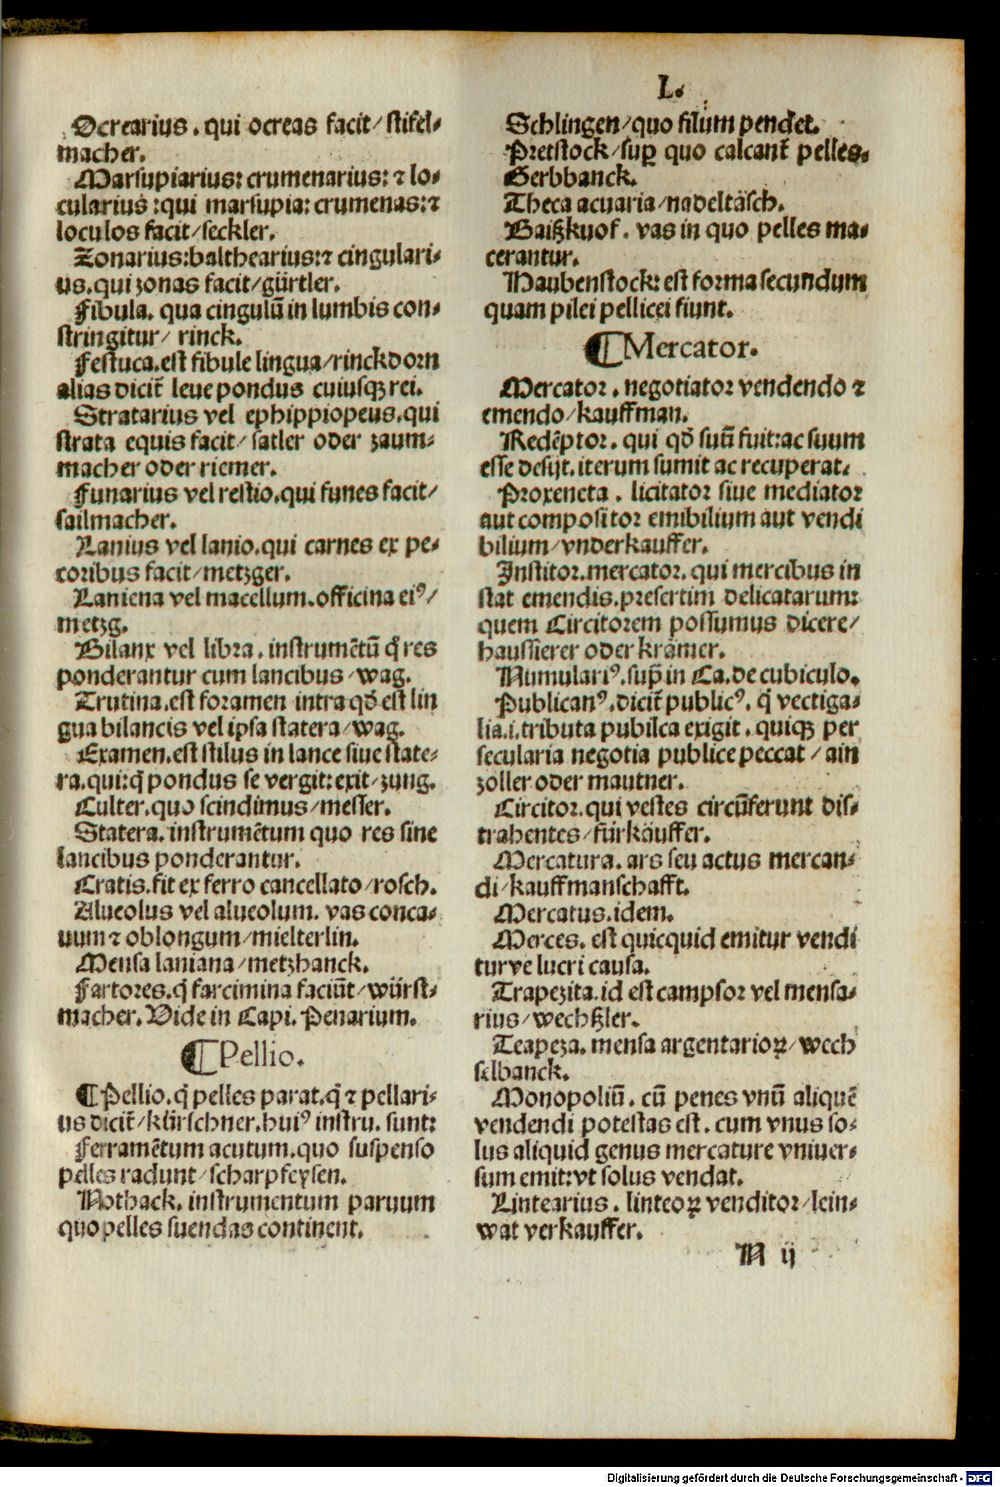 L.
Ocrearius. qui ocreas facit/ stifel⸗
macher.
Marsupiarius: crumenarius: ⁊ lo⸗
cularius :qui marsupia: crumenas:⁊
loculos facit/seckler.
Zonarius:balthearius:⁊ cingulari⸗
us.qui zonas facit/gürtler.
Fibula. qua cingulū in lumbis con⸗
stringitur/ rinck.
Festuca.est fibule lingua/rinckdorn
alias dicit̄ leue pondus cuiusqꝫ rei.
Stratarius vel ephippiopeus.qui
strata equis facit/ satler oder zaum⸗
macher oder riemer.
Funarius vel restio.qui funes facit/
sailmacher.
Lanius vel lanio.qui carnes ex pe⸗
coribus facit/metzger.
Laniena vel macellum.officina eiꝰ/
metzg.
Bilanx vel libra. instrumētū q̄ res
ponderantur cum lancibus/wag.
Trutina.est foramen intra qd̄ est lin
gua bilancis vel ipsa statera/wag.
Examen.est stilus in lance siue state⸗
ra.qui:q̄ pondus se vergit:exit/zung.
Culter.quo scindimus/messer.
Statera. instrumētum quo res sine
lancibus ponderantur.
Cratis.fit ex ferro cancellato/rosch.
Alueolus vel alueolum. vas conca⸗
uum ⁊ oblongum/mielterlin.
Mensa laniana/metzbanck.
Fartores.q̄ farcimina faciūt/würst⸗
macher. Vide in Capi. Penarium.
⸿Pellio.
⸿Pellio.q̄ pelles parat.q̄ ⁊ pellari⸗
us dicit̄/kürschner.huiꝰ instru. sunt:
Ferramētum acutum.quo suspenso
pelles radunt/scharpfeysen.
Nothack. instrumentum paruum
quo pelles suendas continent.
Schlingen/quo filum pendet.
Pretstock/sup̱ quo calcant̄ pelles.
Gerbbanck.
Theca acuaria/nadeltäsch.
Baißkuof. vas in quo pelles ma⸗
cerantur.
Haubenstock: est forma secundum
quam pilei pellicei fiunt.
⸿Mercator.
Mercator. negotiator vendendo ⁊
emendo/kauffman.
Redēptor. qui qd̄ suū fuit:ac suum
esse desijt.iterum sumit ac recuperat.
Proxeneta. licitator siue mediator
aut compositor emibilium aut vendi
bilium/vnderkauffer.
Institor.mercator. qui mercibus in
stat emendis.presertim delicatarum:
quem Circitorem possumus dicere/
haussierer oder krämer.
Numulariꝰ.sup̱ in Ca.de cubiculo.
Publicanꝰ.dicit̄ publicꝰ. q̄ vectiga⸗
lia.i.tributa pubilca exigit. quiqꝫ per
secularia negotia publice peccat/ ain
zoller oder mautner.
Circitor.qui vestes circūferunt dis⸗
trahentes/fürkäuffer.
Mercatura. ars seu actus mercan⸗
di/kauffmanschafft.
Mercatus.idem.
Merces. est quicquid emitur vendi
turve lucri causa.
Trapezita.id est campsor vel mensa⸗
rius/wechßler.
Teapeza. mensa argentarioꝝ/wech
selbanck.
Monopoliū. cū penes vnū aliquē
vendendi potestas est. cum vnus so⸗
lus aliquid genus mercature vniuer⸗
sum emit:vt solus vendat.
Lintearius. linteoꝝ venditor/lein⸗
wat verkauffer.
N ij
Digitalisierung gefördert durch die Deutsche Forschungsgemeinschaft - DFG